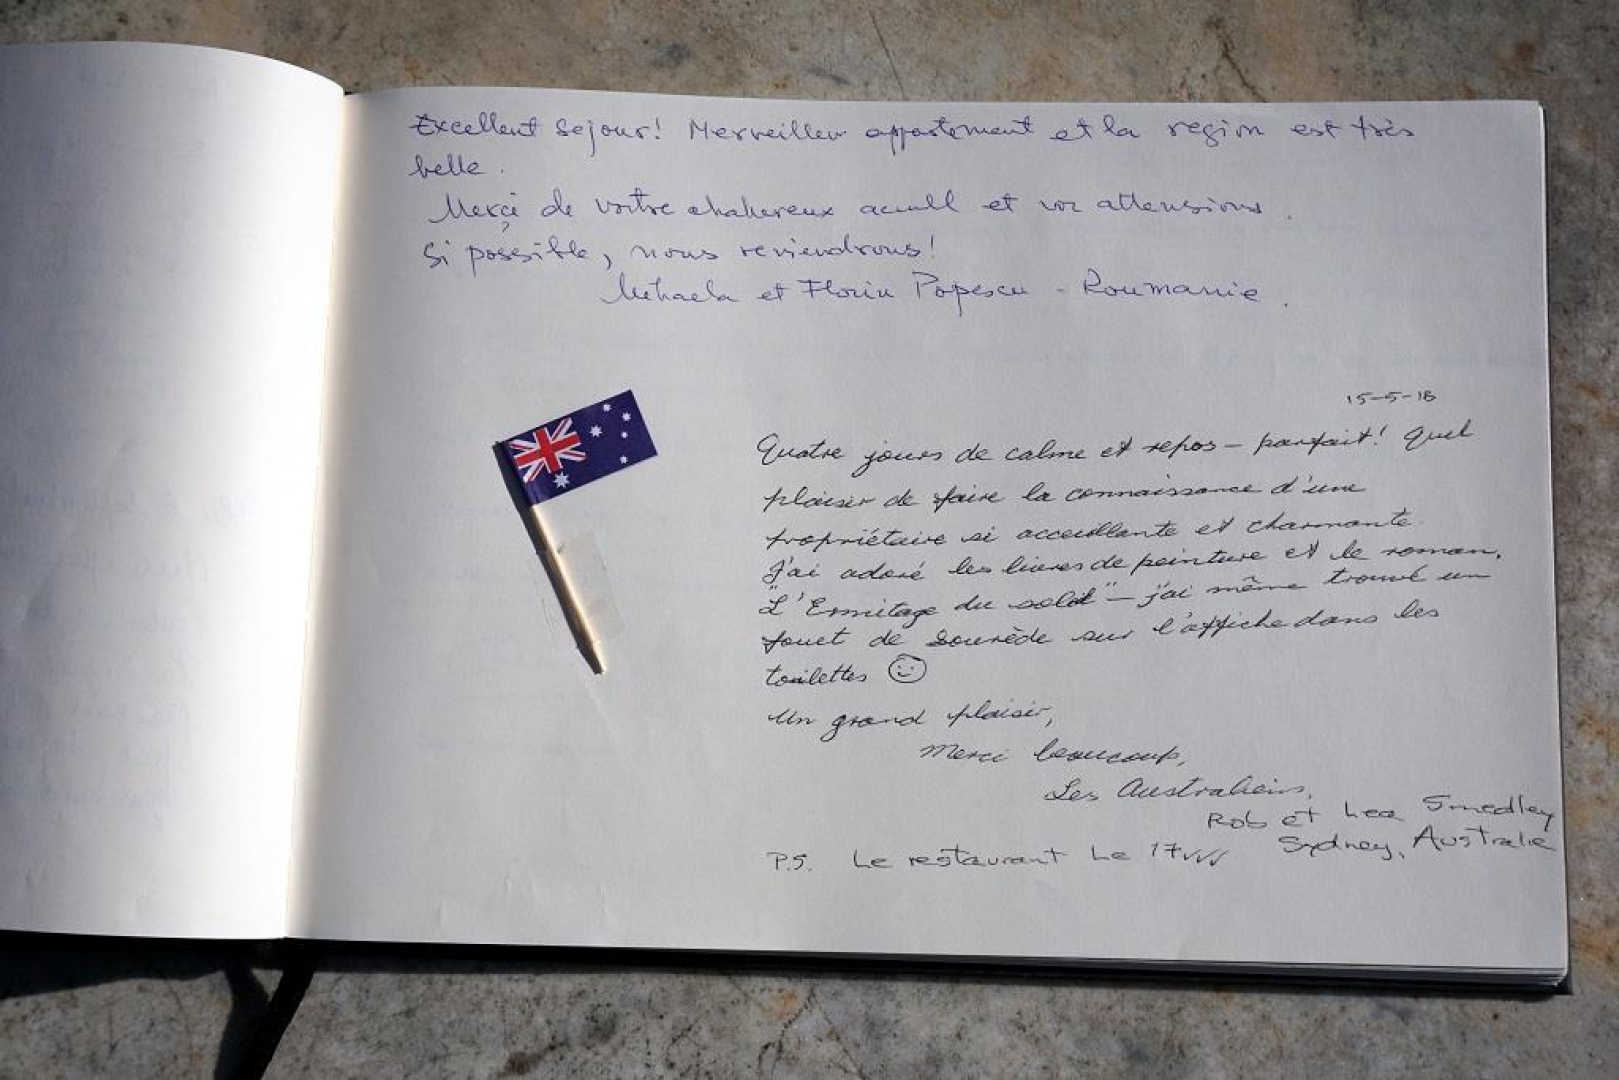 Excellent sejour! Merveilleu appartement et la region est très
belle.
Merci de votre chalureux acuell et vor attensions.
Si possible, nous reviendrons!
Mihaela et Florin Popescu - Roumanie.
15-5-18
Quatre jours de calme et repos - parfait! Quel
plaisir de faire la connaissance d'une
propriétaire si acceuillante et charmante.
J'ai adoré les livres de peinture et le roman,
"L'Ermitage du soleil" - j'ai même trouvé un
jouet de Sourède sur l'affiche dans les
toilettes
Un grand plaisir,
Merci beaucoup,
Les Australiens,
Rob et Lea Smedley
Sydney, Australie
P.S. Le restaurant Le 17